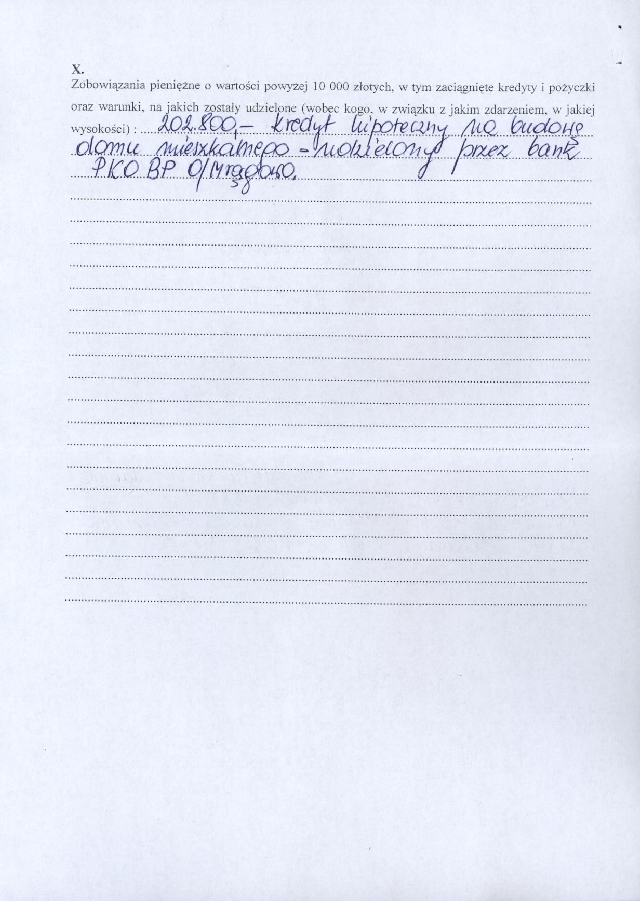 X.
Zobowiązania pieniężne o wartości powyżej 10 000 złotych, w tym zaciągnięte kredyty i pożyczki
oraz warunki, na jakich zostały udzielone (wobec kogo, w związku z jakim zdarzeniem, w jakiej
wysokości) : 202.800,- kredyt hipoteczny na budowę
domu mieszkalnego - udzielony przez bank
PKO BP O/Mrągowo.